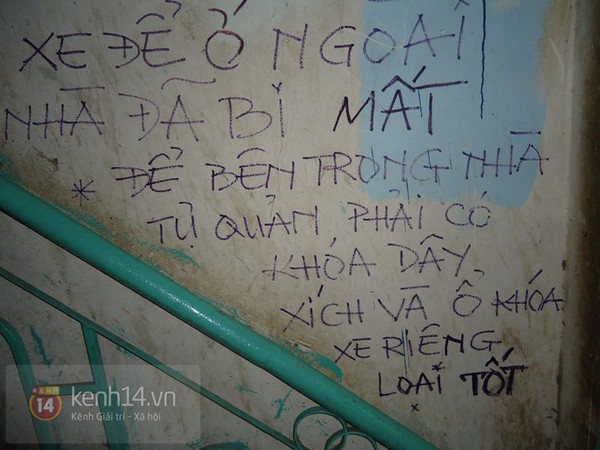 XE ĐỂ Ở NGOÀI
NHÀ ĐÃ BỊ MẤT
* ĐỂ BÊN TRONG NHÀ
TỰ QUẢN PHẢI CÓ
KHÓA DÂY
XÍCH VÀ Ổ KHÓA
XE RIÊNG
LOẠI TỐT
KENH
14
kenh14.vn
Kênh Giải trí - Xã hội